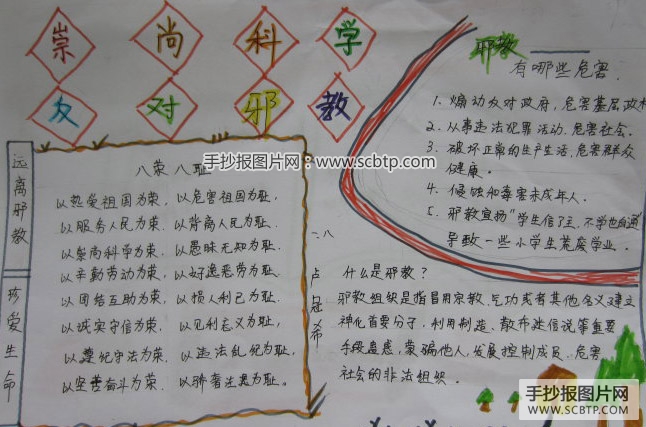 崇尚科学
友对邪教
远离邪教
珍爱生命
八荣八耻
以热爱祖国为荣、以危害祖国为耻,
以服务人民为荣、以背离人民为耻,
以崇尚科学为荣、以愚昧无知为耻,
以辛勤劳动为荣、以好逸恶劳为耻,
以团结互助为荣、以损人利己为耻,
以诚实守信为荣、以见利忘义为耻,
以遵纪守法为荣、以违法乱纪为耻,
以坚苦奋斗为荣、以骄奢淫逸为耻。
二、八
卢冠希
邪教
有哪些危害.
1. 煽动反对政府,危害基层政
2. 从事违法犯罪活动,危害社会。
3. 破坏正常的生产生活,危害群众
健康。
4. 侵蚀和毒害未成年人。
5. 邪教宣扬"学生信了主,不学也自通
导致一些小学生荒废学业。
什么是邪教?
邪教组织是指冒用宗教、气功或者其他名义建立
神化首要分子,利用制造、散布迷信说等重要
手段蛊惑,蒙骗他人,发展控制成员、危害
社会的非法组织。
手抄报图片网:www.scbtp.com
手抄报图片网
WWW.SCBTP.COM